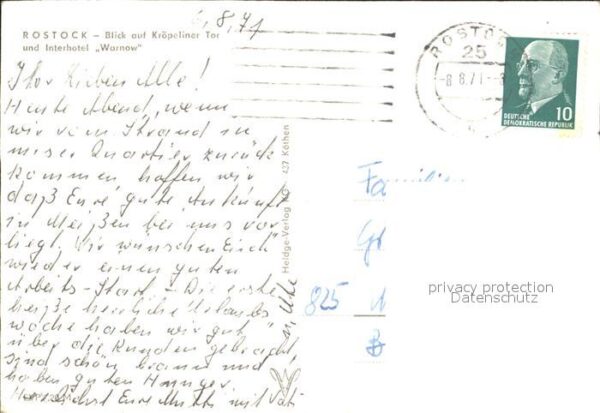 6.8.71
ROSTOCK – Blick auf Kröpeliner Tor
und Interhotel „Warnow"
Ihr Lieben Alle!
Heute Abend, wenn
wir vom Strand in
unser Quartier zurück
kommen hoffen wir
daß Eure gute Ankunft
in Meißen bei uns vor
liegt. Wir wünschen Euch
wieder einen guten
Arbeits-Start. – Die erste
heiße herrliche Urlaubs
woche haben wir gut
über die Runden gebracht,
sind schön braun und
haben guten Hunger.
Herzlichst Eure Mutti mit Vati
u. Ute
Heldge-Verlag KG 437 Köthen
ROSTOCK
25
-8.8.71
DEUTSCHE
DEMOKRATISCHE REPUBLIK
10
Familie
825
privacy protection
Datenschutz